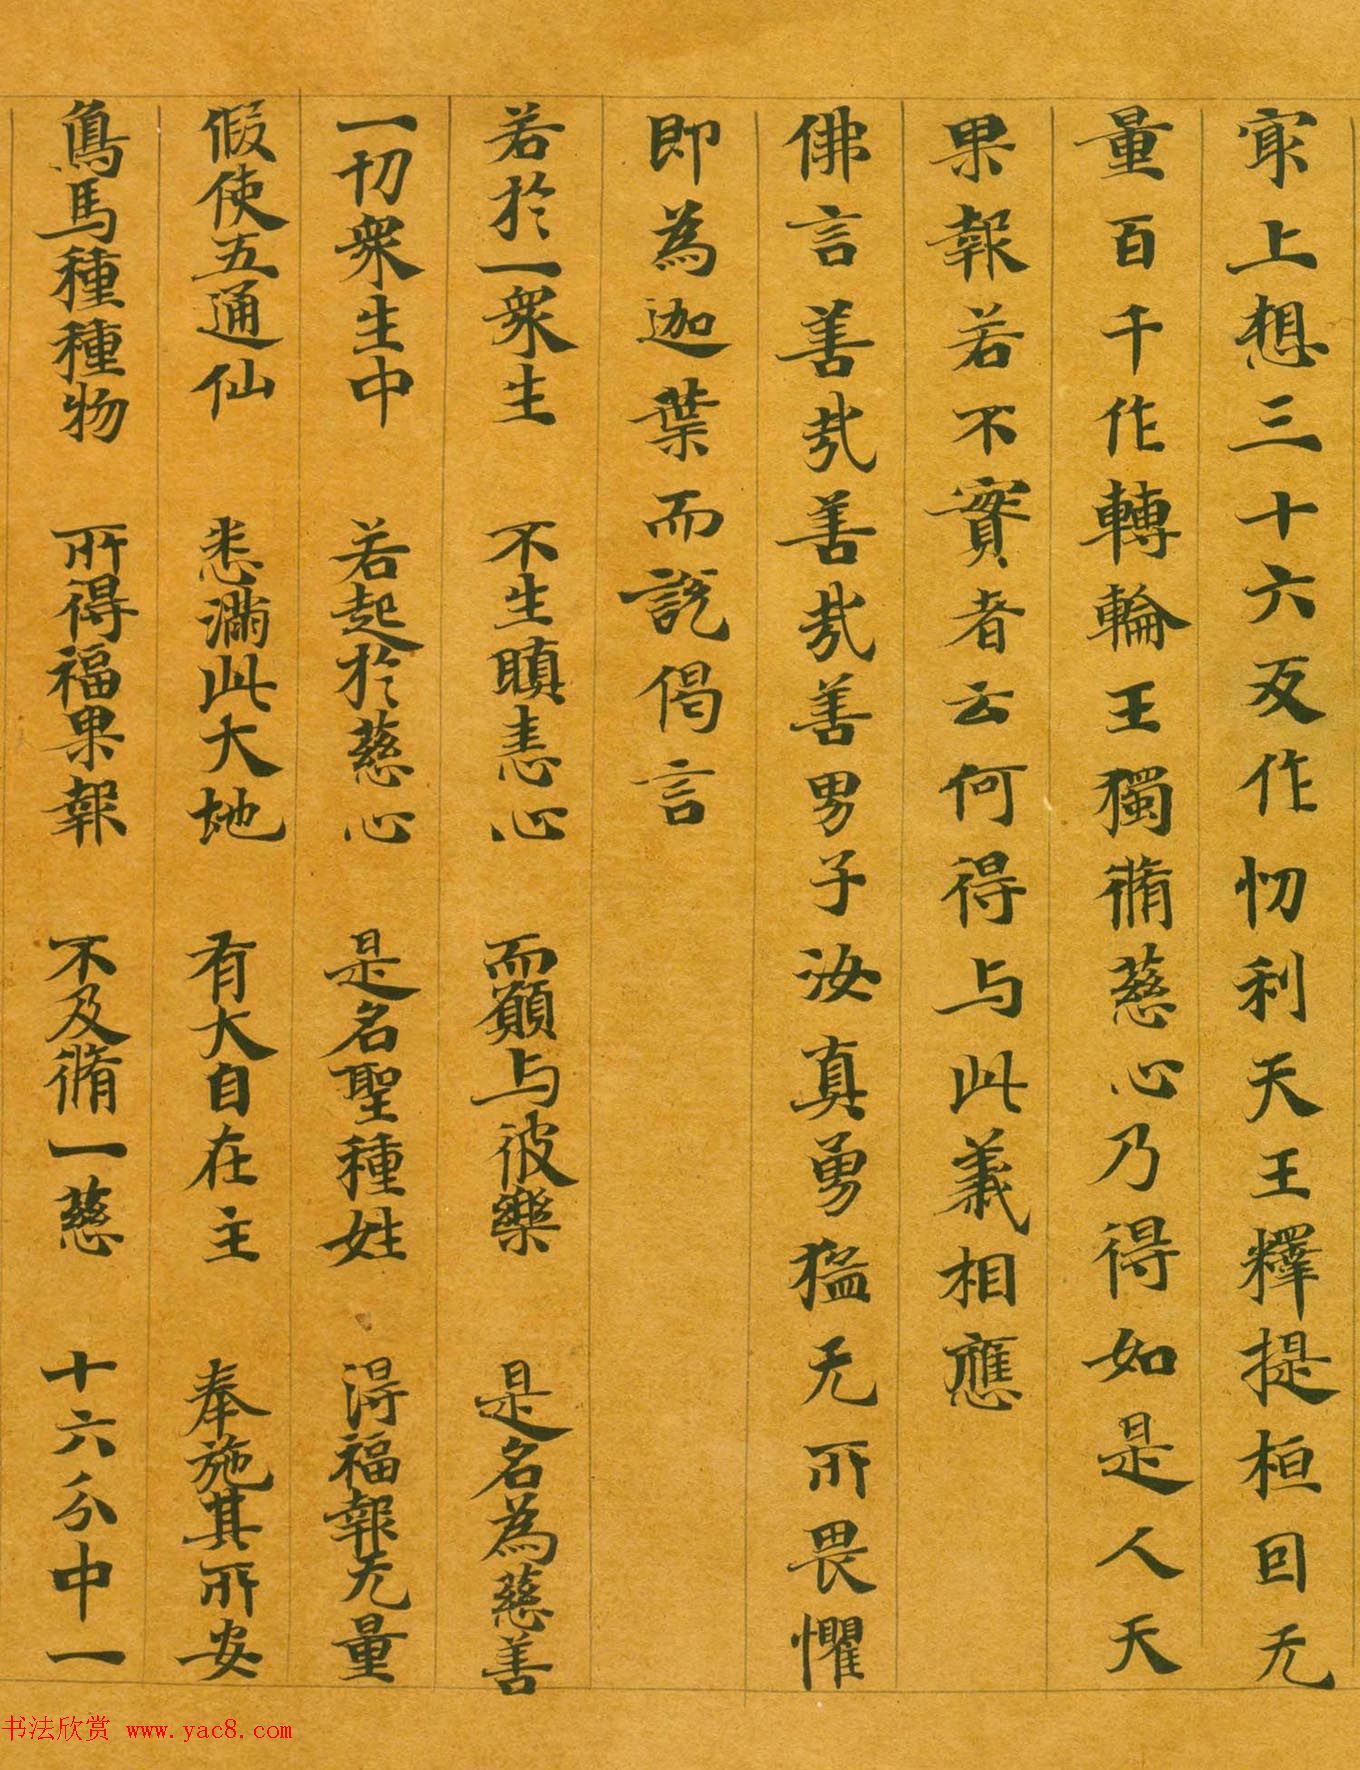 㝡上想三十六反作忉利天王釋提桓因无
量百千作轉輪王獨脩慈心乃得如是人天
果報若不實者云何得与此義相應
佛言善㢤善㢤善男子汝真勇猛无所畏懼
即為迦葉而說偈言
若於一衆生 不生瞋恚心 而願与彼樂 是名為慈善
一切衆生中 若起於慈心 是名聖種姓 得福報无量
假使五通仙 悉滿此大地 有大自在主 奉施其所安
烏馬種種物 所得福果報 不及脩一慈 十六分中一
书法欣赏 www.yac8.com